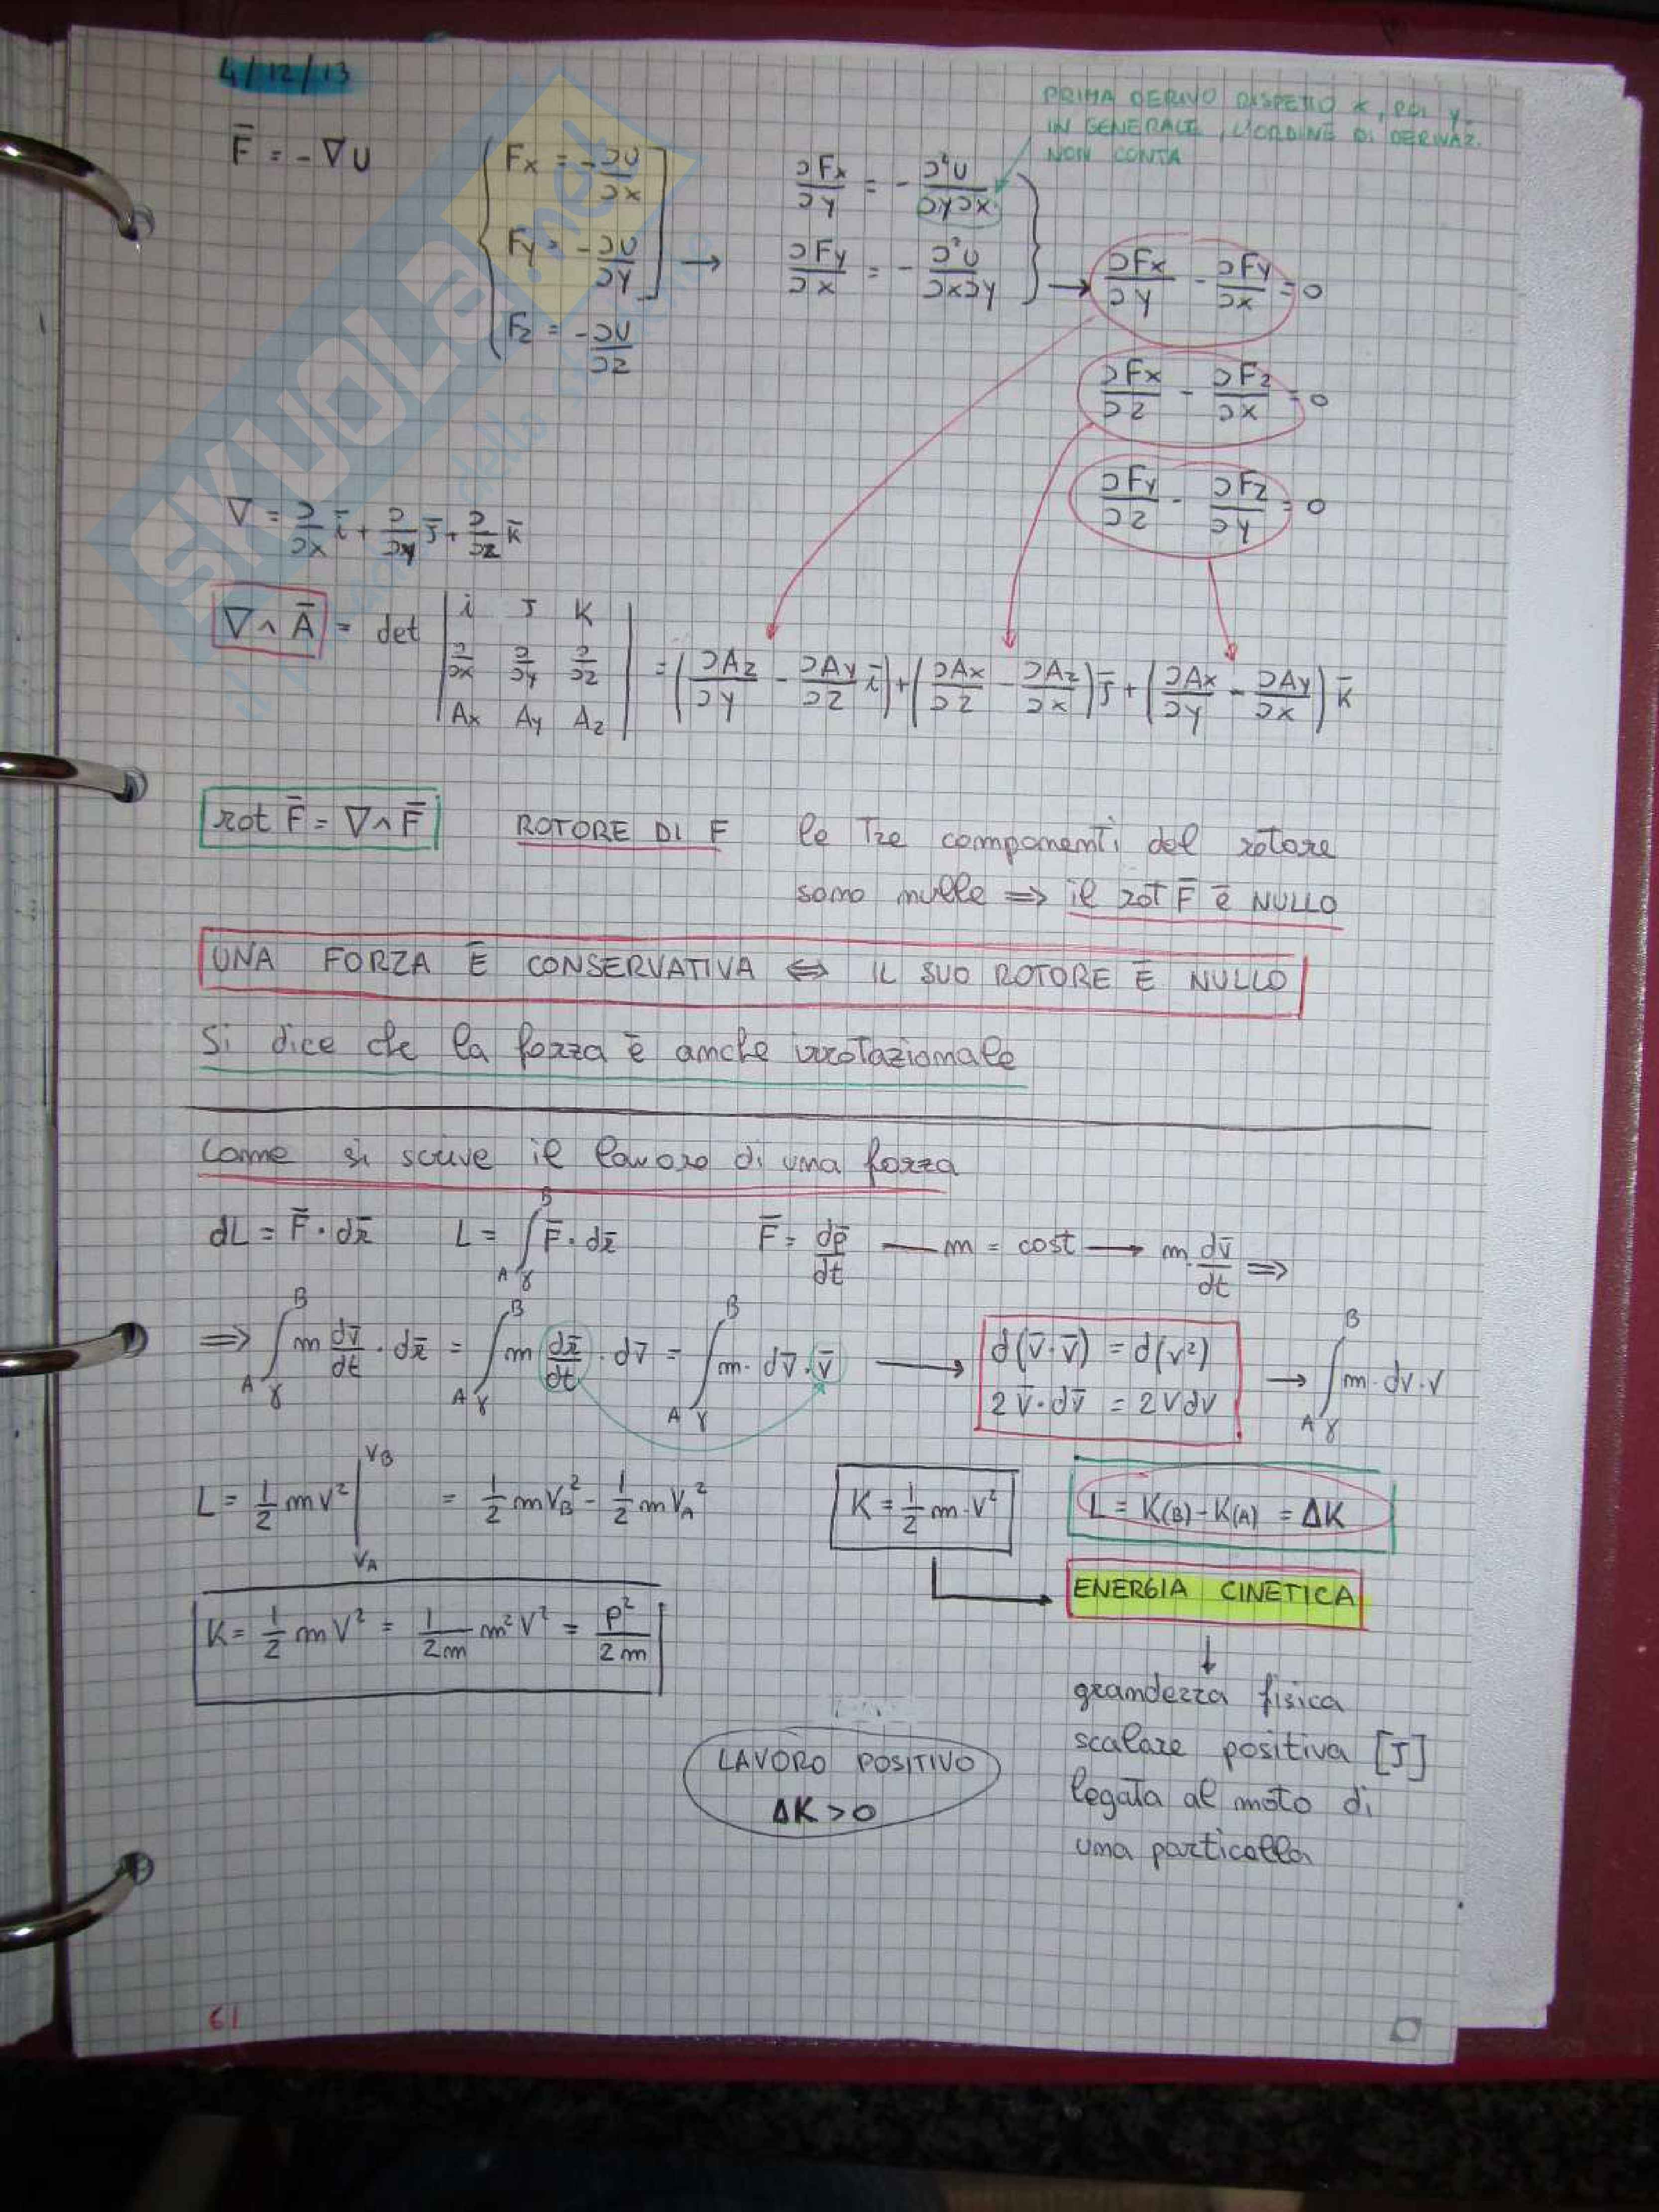 4/12/13
PRIMA DERIVO RISPETTO X, POI Y.
IN GENERALE, L'ORDINE DI DERIVAZ.
NON CONTA
F̅ = -∇U
{ Fx = -∂U/∂x
Fy = -∂U/∂y
Fz = -∂U/∂z
→ ∂Fx/∂y = -∂²U/∂y∂x
∂Fy/∂x = -∂²U/∂x∂y
→ ∂Fx/∂y - ∂Fy/∂x = 0
∂Fx/∂z - ∂Fz/∂x = 0
∂Fy/∂z - ∂Fz/∂y = 0
∇ = ∂/∂x i̅ + ∂/∂y j̅ + ∂/∂z k̅
∇∧A̅ = det | i J K |
| ∂/∂x ∂/∂y ∂/∂z |
| Ax Ay Az |
= (∂Az/∂y - ∂Ay/∂z i̅) + (∂Ax/∂z - ∂Az/∂x) J̅ + (∂Ax/∂y - ∂Ay/∂x) K̅
rot F̅ = ∇∧F̅ ROTORE DI F le Tre componenti del rotore
sono nulle ⇒ il rot F̅ è NULLO
UNA FORZA È CONSERVATIVA ⇔ IL SUO ROTORE È NULLO
Si dice che la forza è anche irrotazionale
Come si scrive il lavoro di una forza
dL = F̅ · dr̅ L = ∫_Aγ^B F̅ · dr̅ F̅ = dp̅/dt — m = cost → m · dv̅/dt ⇒
⇒ ∫_Aγ^B m dv̅/dt · dr̅ = ∫_Aγ^B m dr̅/dt · dv̅ = ∫_Aγ^B m · dv̅ · v̅ → d(v̅ · v̅) = d(v²) → ∫_Aγ^B m · dv · v
2 v̅ · dv̅ = 2VdV
L = 1/2 mV² |_VA^VB = 1/2 mVB² - 1/2 mVA² K = 1/2 m · V² L = K(B) - K(A) = ΔK
ENERGIA CINETICA
K = 1/2 mV² = 1/2m m²V² = P²/2m
grandezza fisica
scalare positiva [J]
legata al moto di
una particella
LAVORO POSITIVO
ΔK > 0
61
SKUOLA.net